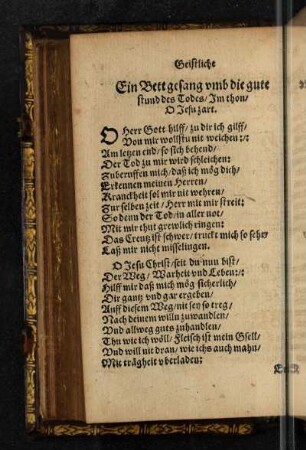 Geistliche
Ein Bett gesang vmb die gute
stund des Todes/ Im thon/
O Jesu zart.
O Herr Gott hilff/ zu dir ich gilff/
Von mir wollstu nit weichen :/:
Am letzen end/ so sich behend/
Der Tod zu mir wird schleichen:
Zuberuffen mich/ daß ich mög dich/
Erkennen meinen Herren/
Kranckheit sol mir nit wehren/
Zur selben zeit/ Herr mit mir streit:
So denn der Tod/ in aller not/
Mit mir thut grewlich ringen:
Das Creutz ist schwer/ truckt mich so sehr/
Laß mir nicht misselingen.
O Jesu Christ/ seit du nun bist/
Der Weg/ Warheit vnd Leben :/:
Hilff mir daß mich mög sicherlich/
Dir gantz vnd gar ergeben/
Auff diesem Weg/ nit sey so treg/
Nach deinem willn zuwandlen/
Vnd allweg guts zuhandlen/
Thu wie ich wöll/ Fleisch ist mein Gsell/
Vnd will nit dran/ wie ichs auch mahn/
Mit trägheit vberladen: